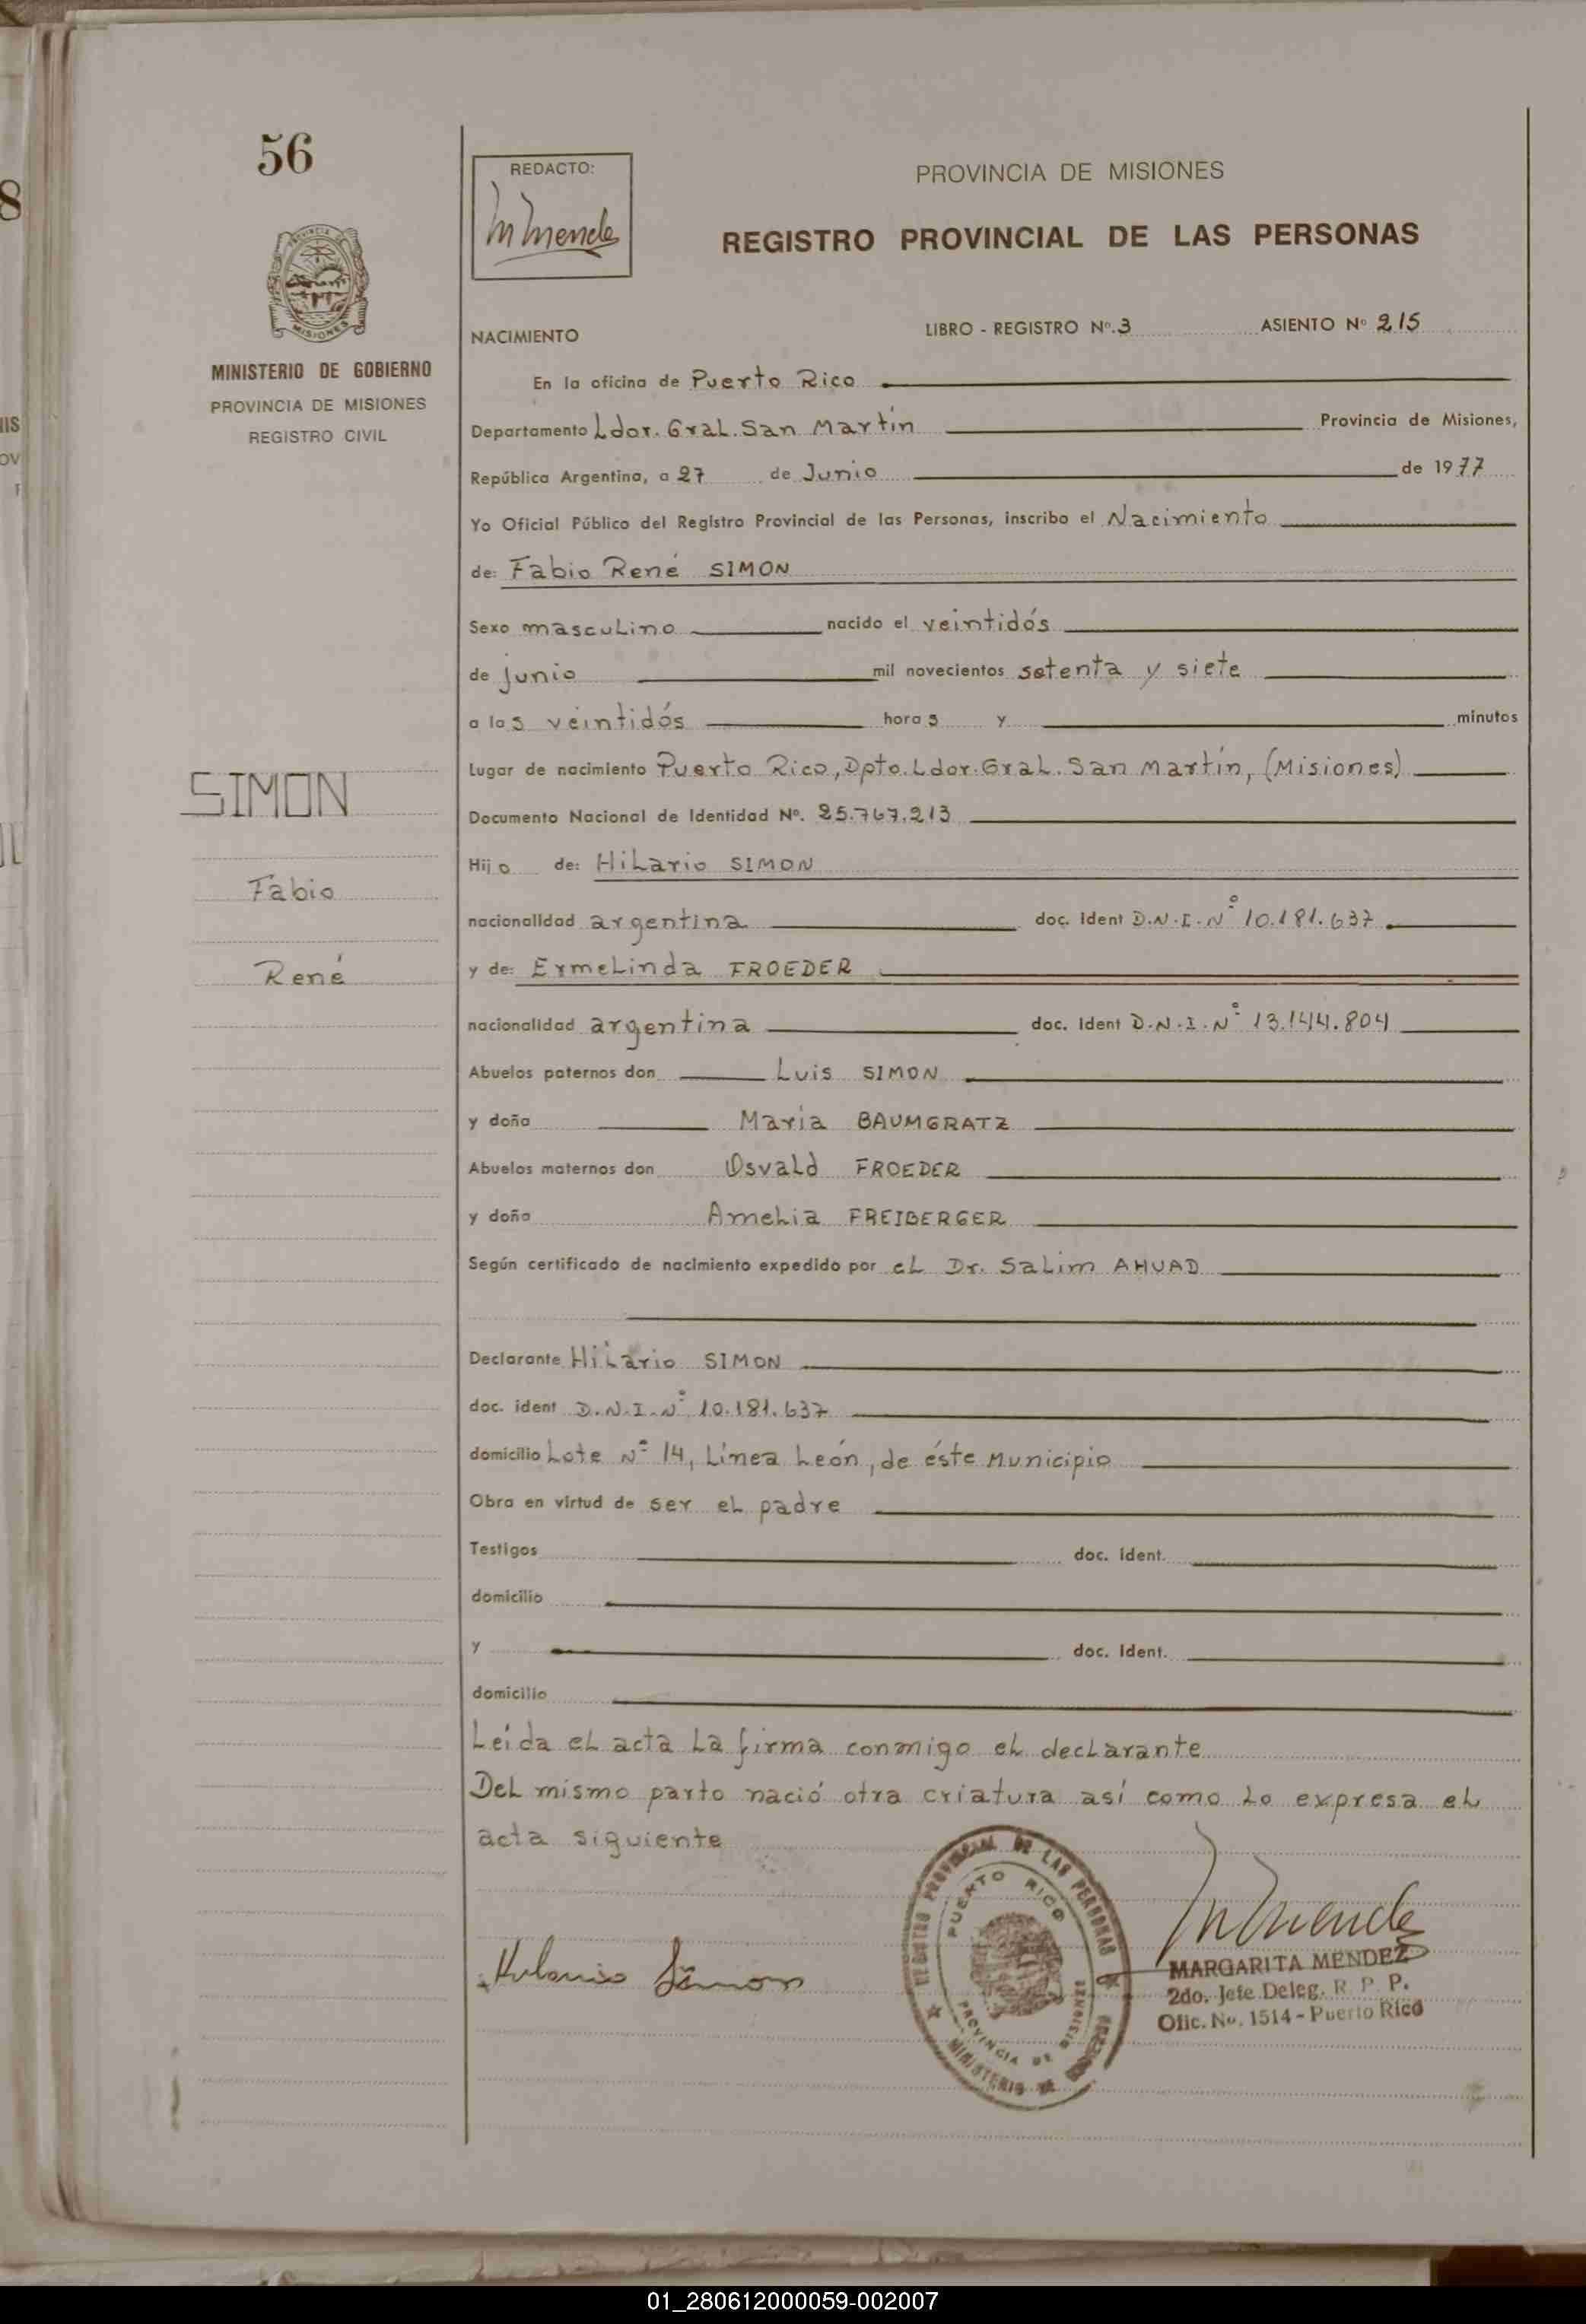 56
REDACTO:
PROVINCIA DE MISIONES
REGISTRO PROVINCIAL DE LAS PERSONAS
MISIONES
MINISTERIO DE GOBIERNO
PROVINCIA DE MISIONES
REGISTRO CIVIL
NACIMIENTO LIBRO - REGISTRO Nº. 3 ASIENTO Nº 215
En la oficina de Puerto Rico
Departamento Ldor. Gral. San Martín Provincia de Misiones,
República Argentina, a 27 de Junio de 1977
Yo Oficial Público del Registro Provincial de las Personas, inscribo el Nacimiento
de: Fabio René SIMON
Sexo masculino nacido el veintidós
de junio mil novecientos setenta y siete
a las veintidós horas y minutos
Lugar de nacimiento Puerto Rico, Dpto. Ldor. Gral. San Martín, (Misiones)
SIMON
Documento Nacional de Identidad Nº. 25.767.213
Hijo de: Hilario SIMON
Fabio
nacionalidad argentina doc. ident D.N.I. Nº 10.181.637
René
y de: Ermelinda FROEDER
nacionalidad argentina doc. ident D.N.I. Nº 13.144.804
Abuelos paternos don Luis SIMON
y doña María BAUMGRATZ
Abuelos maternos don Osvald FROEDER
y doña Amelia FREIBERGER
Según certificado de nacimiento expedido por el Dr. Salim AHUAD
Declarante Hilario SIMON
doc. ident D.N.I. Nº 10.181.637
domicilio Lote Nº 14, Línea León, de éste Municipio
Obra en virtud de ser el padre
Testigos doc. ident.
domicilio
y doc. ident.
domicilio
Leída el acta la firma conmigo el declarante
Del mismo parto nació otra criatura así como lo expresa el
acta siguiente
REGISTRO PROVINCIAL DE LAS PERSONAS
PUERTO RICO
PROVINCIA DE MISIONES
MINISTERIO DE GOBIERNO
MARGARITA MENDEZ
2do. Jefe Deleg. R. P. P.
Ofic. No. 1514 - Puerto Rico
01_280612000059-002007